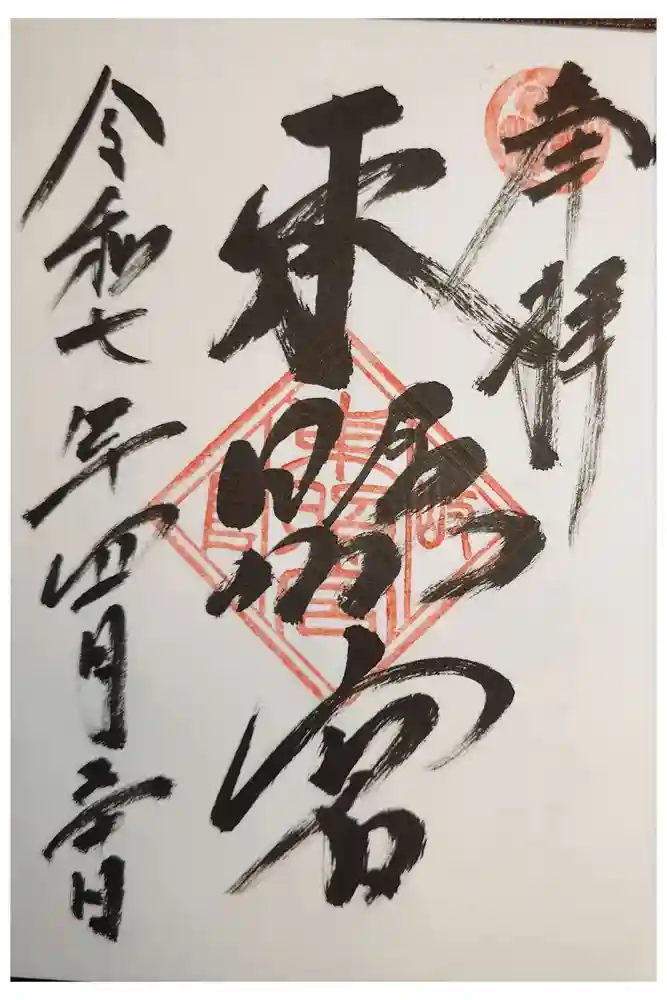 奉拝
東照宮
令和七年四月 日
東照宮